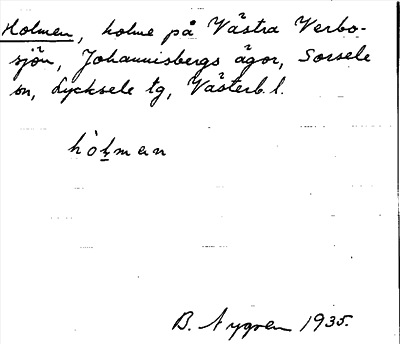 Holmen, holme på Västra Verbo-
sjön, Johannisbergs ägor, Sorsele
sn, Lycksele tg, Västerb. l.
hòl̥men
B. Nygren 1935.